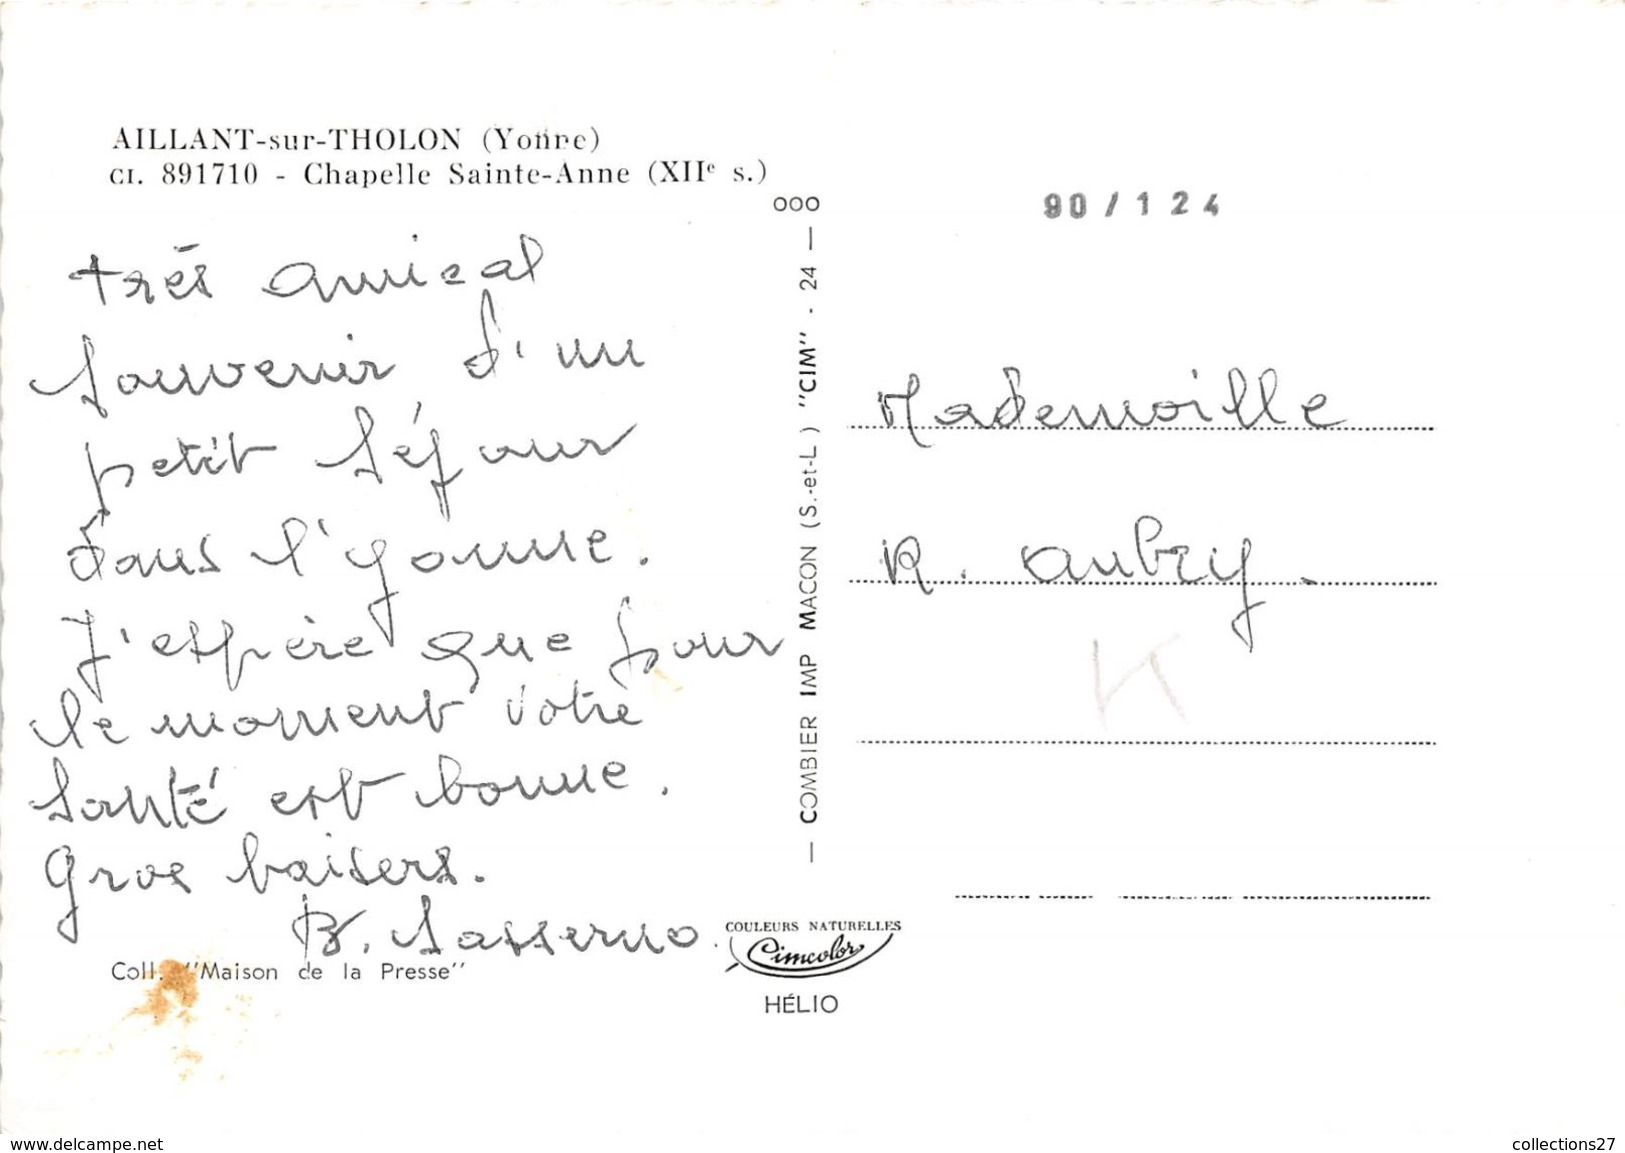 AILLANT-sur-THOLON (Yonne)
CI. 891710 - Chapelle Sainte-Anne (XIIe s.)
très amical
souvenir d'un
petit séjour
dans l'yonne.
J'espère que pour
le moment votre
santé est bonne.
Gros baisers.
B. Sasserno.
Coll. "Maison de la Presse"
000
— COMBIER IMP MACON (S.-et-L) "CIM" - 24 —
COULEURS NATURELLES
Cimcolor
HÉLIO
90/124
Mademoille
R. Aubry.
www.delcampe.net
collections27